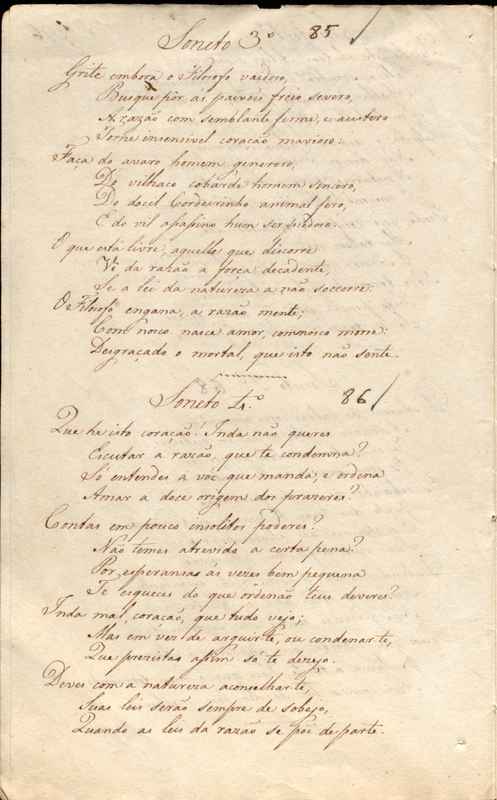 Soneto 3.º 85/
Grite embora o Filosofo vaidoso,
Busque pôr ás paixões freio severo,
A razão com semblante firme, e austero
Torne insensivel coração mavioso:
Faça do avaro homem generoso,
Do vilhaco cobarde homem sincero,
Do docil Cordeirinho animal fero,
E do vil assassino hum ser
O que está livre, aquelle que discorre
Vê da razão a forca decadente,
Se a lei da natureza a não soccorre:
O Filosofo engana, a razão mente;
Com nosco nasce amor, comnosco morre:
Desgraçado o mortal, que isto não sente.
Soneto 4.º 86/
Que he isto coração! Inda não queres
Escutar á razão, que te condemna?
Só entendes a voz que manda, e ordena
Amar a doce origem dos prazeres?
Contas em pouco insolitos poderes?
Não temes atrevido a certa pena?
Por esperansas ás vezes bem pequena
Te esqueces do que ordenão teus deveres?
Inda mal, coração, que tudo vejo;
Mas em vez de arguir-te, ou condenar-te,
Que prezistas assim só te dezejo.
Deves com a natureza aconselhar-te,
Suas leis serão sempre de sobejo,
Quando as leis da razão se põe de parte.